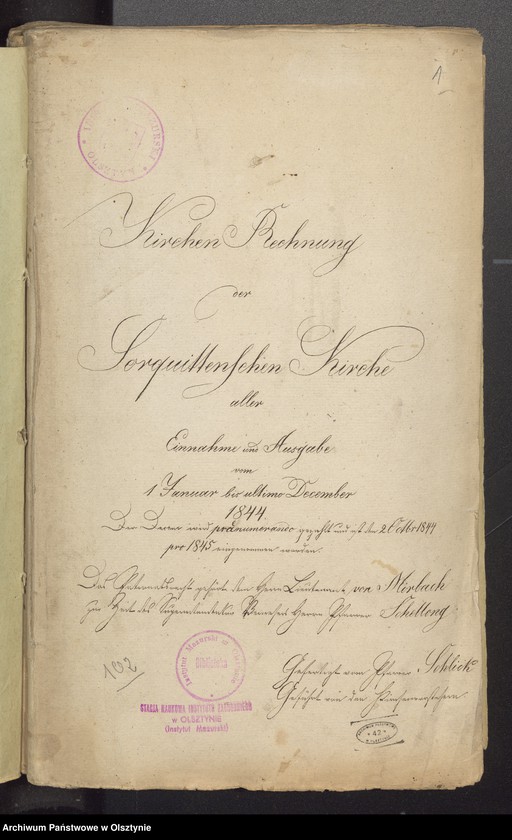 A
Kirchen Rechnung
der
Sorquittenschen Kirche
aller
Einnahme und Ausgabe
vom
1 Januar bis ultimo December
1844.
Der Decem wird praenumerando gezahlt und ist den 2 Octbr 1844
pro 1845 eingenommen worden.
Das Patronatsrecht gehört dem Herrn Lieutenant von Mirbach
zur Zeit des Superintendenten Herrn Pfarrer Schelleng
102
Instytut Mazurski w Olsztynie
Biblioteka
Gefertigt vom Pfarrer Schlick
Geführt von den Kirchenvorstehern.
STACJA NAUKOWA INSTYTUTU ZACHODNIEGO
w OLSZTYNIE
(Instytut Mazurski)
43
Archiwum Państwowe w Olsztynie